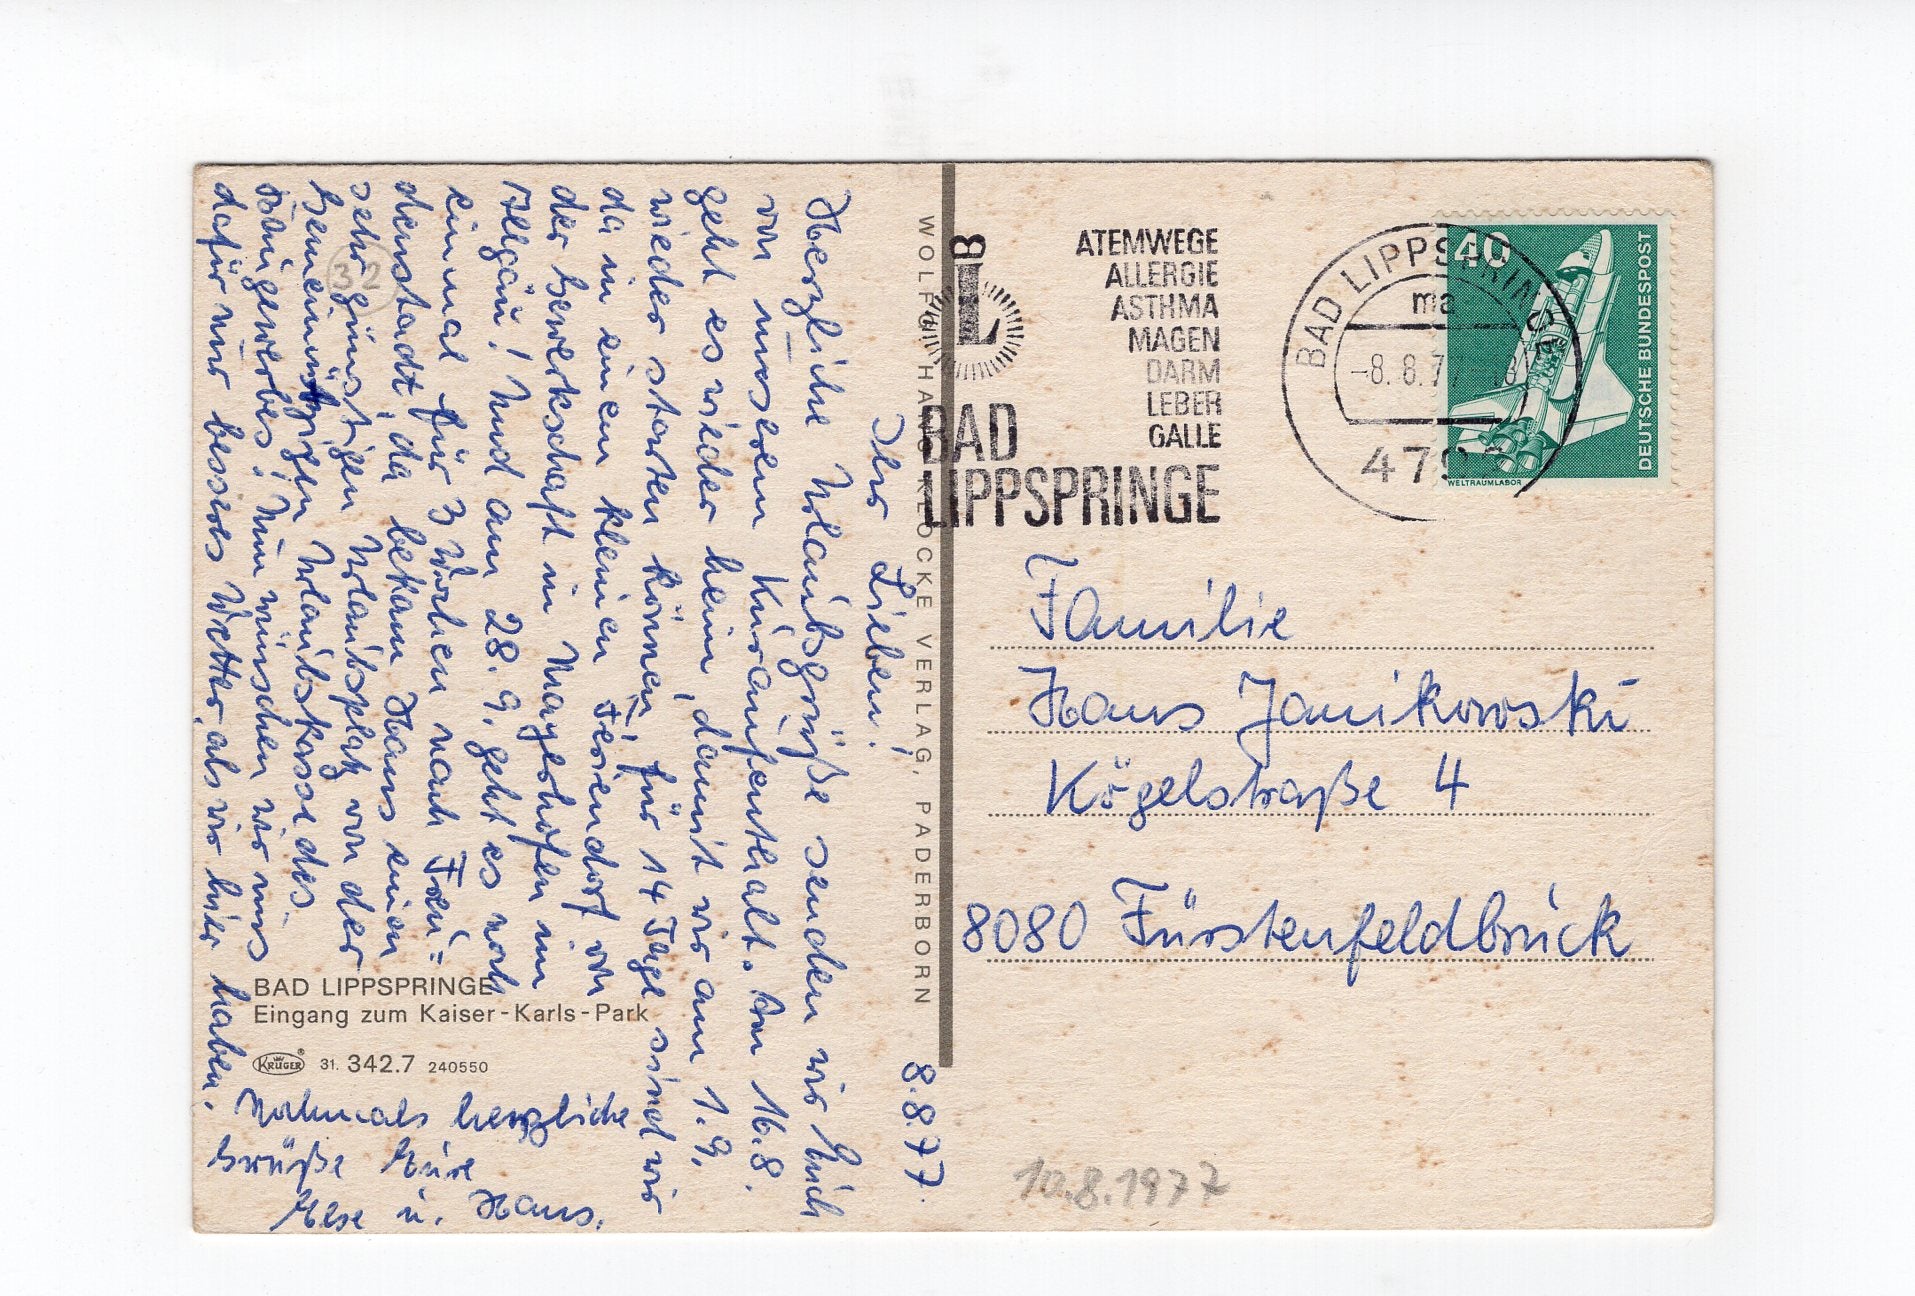 8.8.77.
Ihr Lieben!
Herzliche Urlaubsgrüße senden wir Euch
von unserem Kuraufenthalt. Am 16.8.
geht es wieder heim, damit wir am 1.9.
wieder starten können, für 14 Tage sind wir
da in einem kleinen Feriendorf von
der Gewerkschaft in Mayerhöfen im
Allgäu! Und am 28.9. geht es noch
einmal für 3 Wochen nach Freu=
denstadt, da bekam Hans einen
sehr günstigen Urlaubsplatz von der
Gemeinnützigen Urlaubskasse des
Baugewerbes! Nun wünschen wir uns
dafür nur besseres Wetter, als wir hier haben.
Nochmals herzliche
Grüße Eure
Else u. Hans.
32
BAD LIPPSPRINGE
Eingang zum Kaiser-Karls-Park
KRÜGER 31. 342.7 240550
WOLFGHANS KLOCKE VERLAG, PADERBORN
B
L
ATEMWEGE
ALLERGIE
ASTHMA
MAGEN
DARM
LEBER
GALLE
BAD
LIPPSPRINGE
BAD LIPPSPRINGE
ma
-8.8.77
479
40
DEUTSCHE BUNDESPOST
WELTRAUMLABOR
Familie
Hans Janikowski
Kögelstraße 4
8080 Fürstenfeldbrück
10.8.1977